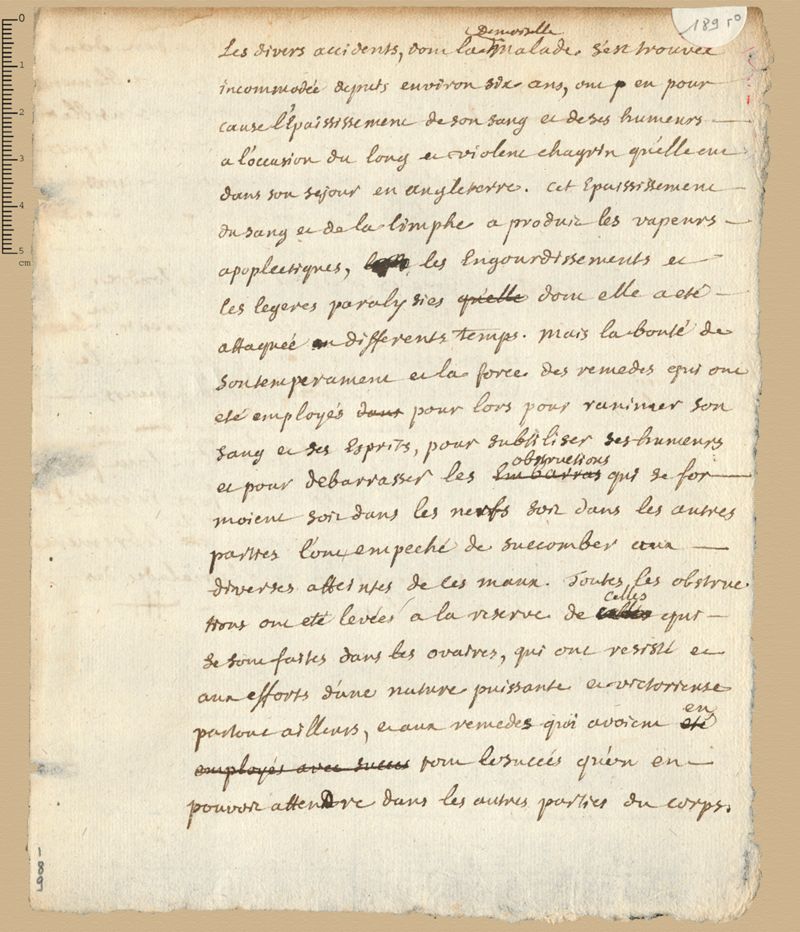 189 r°
Demoiselle
Les divers accidents, dont la Malade s'est trouvée
incommodée depuis environ six ans, ont eu pour
cause l'Epaississement de son sang et de ses humeurs
a l'occasion du long et violent chagrin qu'elle eut
dans son sejour en angleterre. Cet Epaississement
du sang et de la limphe a produit les vapeurs
apoplectiques, les Engourdissements et
les legeres paralysies qu'elle dont elle a eté
attaquée en differents temps. Mais la bonté de
son temperament et la force des remedes qui ont
eté employés dans pour lors pour ranimer son
sang et ses Esprits, pour subtiliser ses humeurs
obstructions
et pour debarrasser les Embarras qui se for
moient soit dans les nerfs soit dans les autres
parties l'ont empeché de succomber aux
diverses atteintes de ces maux. Toutes les obstruc
celles
tions ont eté levées a la reserve de celles qui
se sont faites dans les ovaires, qui ont resisté et
aux efforts d'une nature puissante et victorieuse
partout ailleurs, et aux remedes qui avoient eté
en
employés avec succes tout le succés qu'on en
pouvoit attenDre dans les autres parties du corps.
189
0
1
2
3
4
5
cm